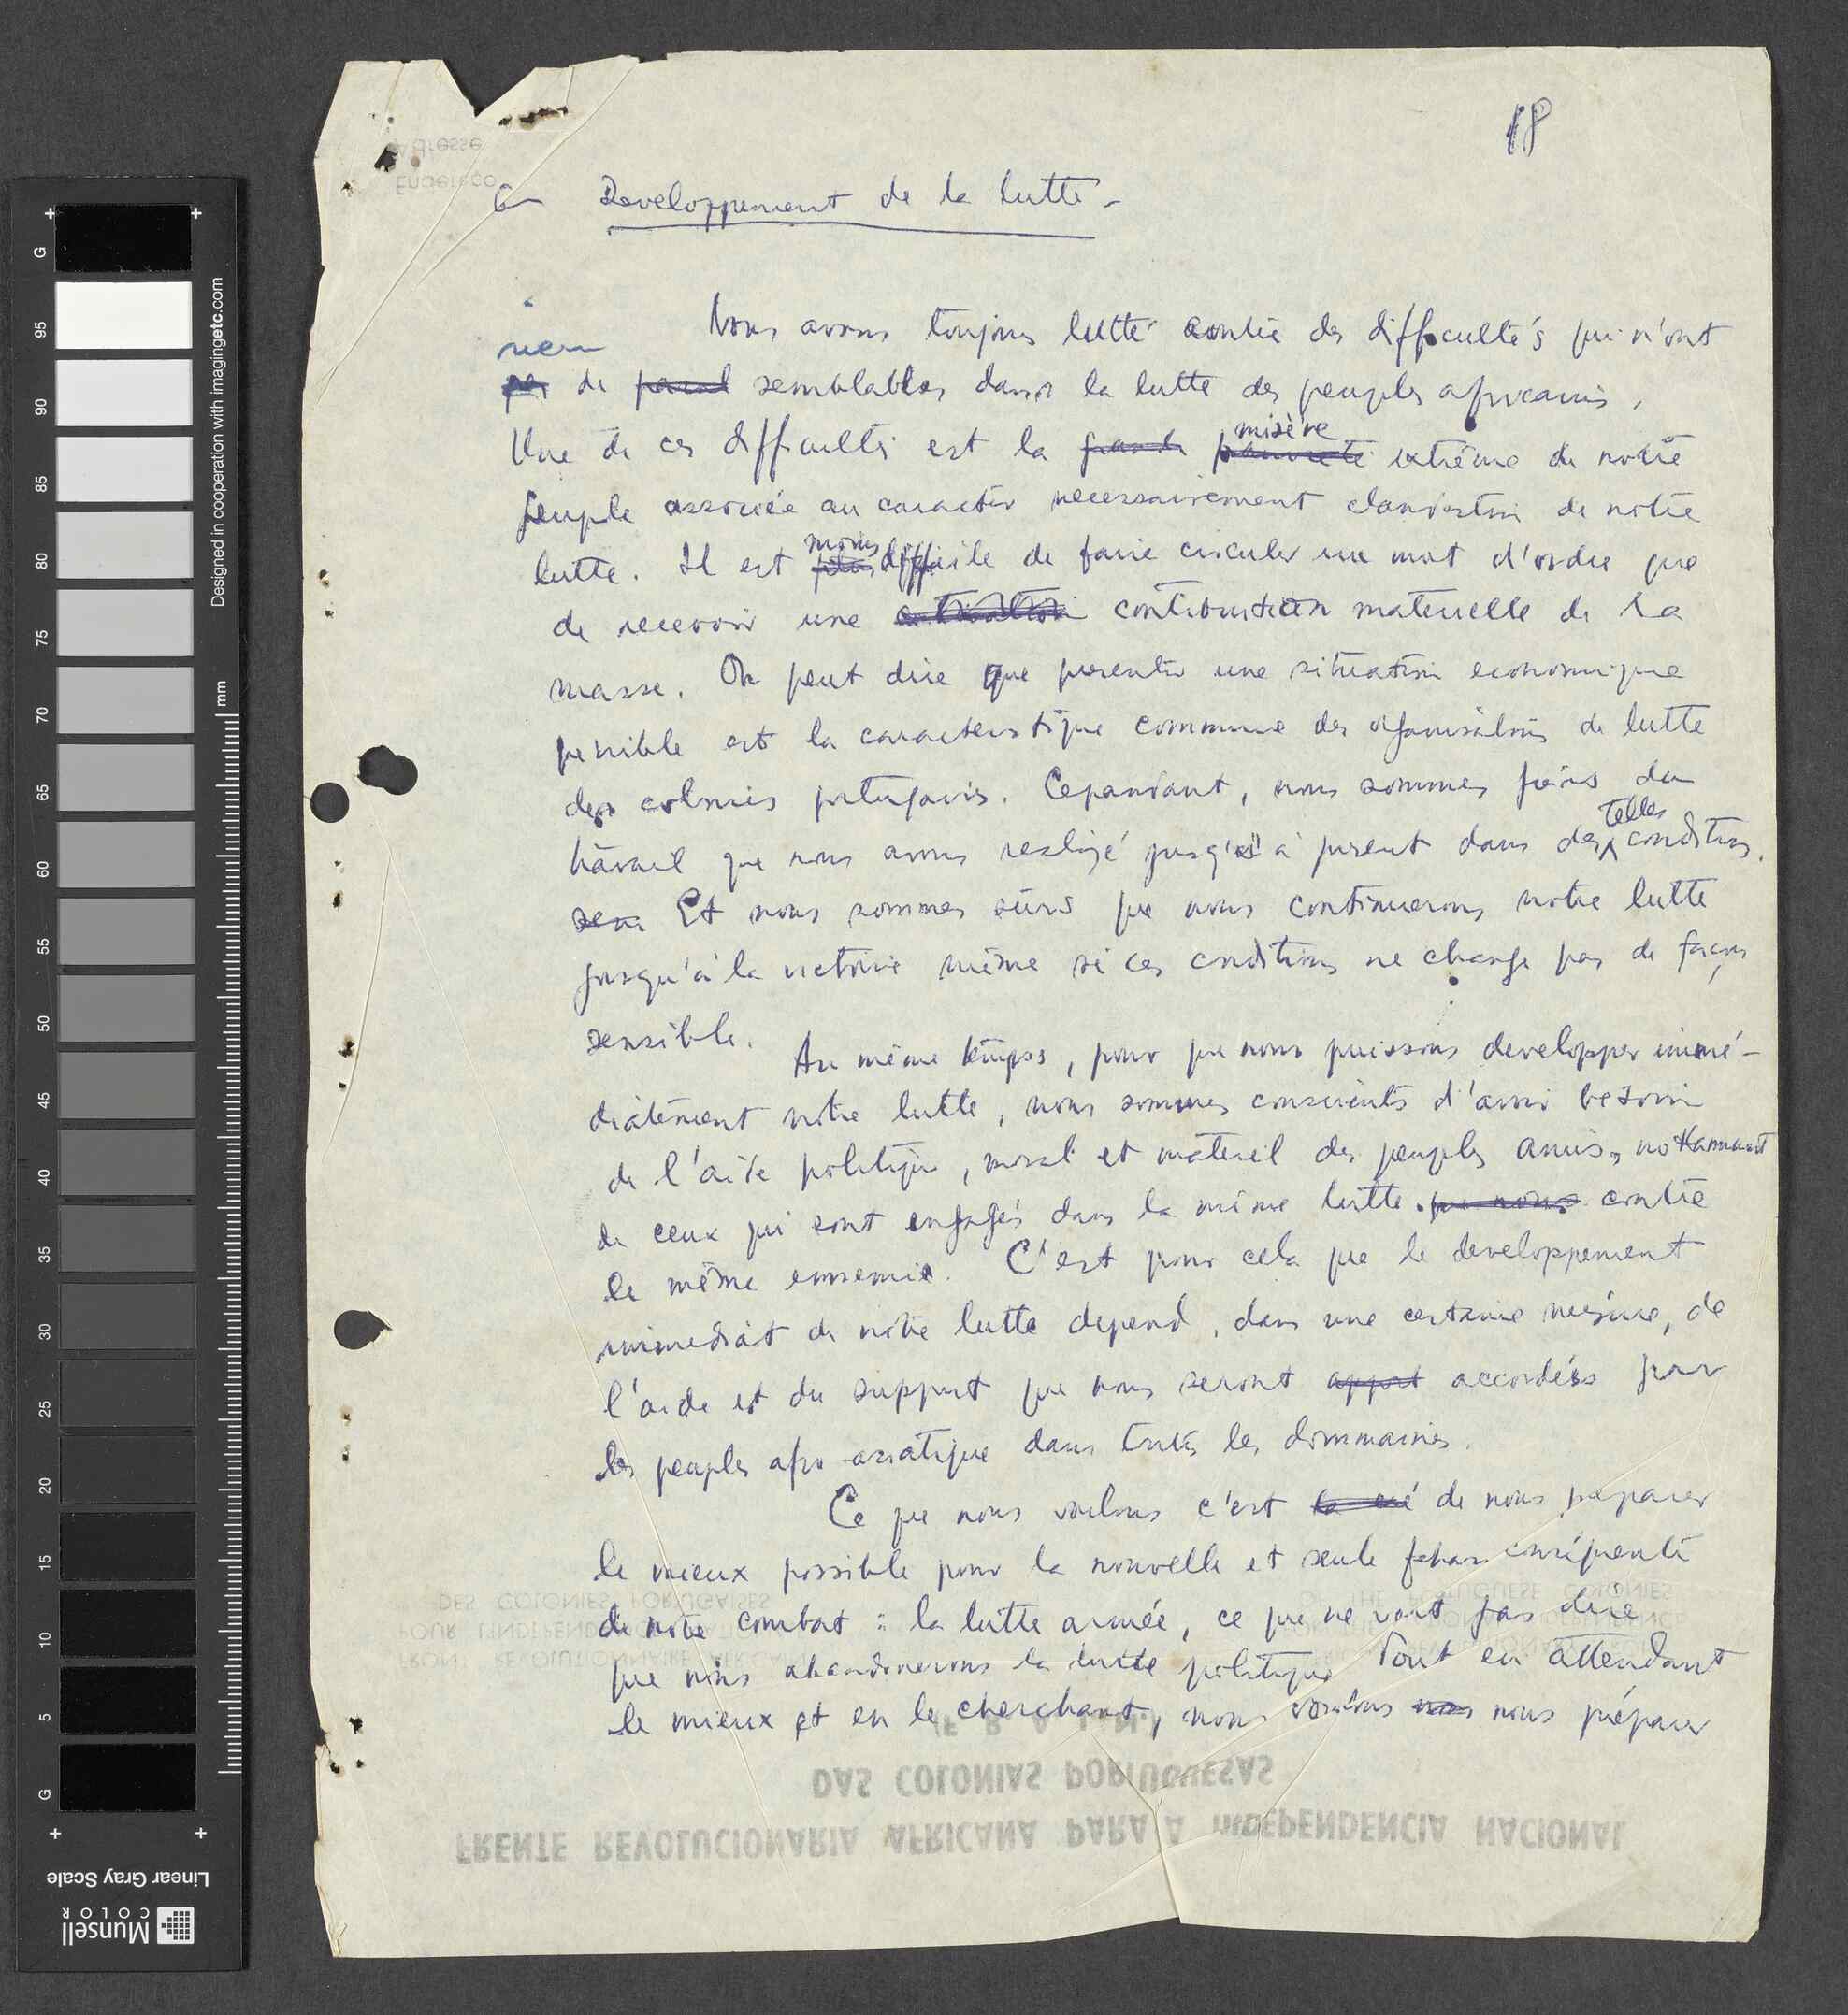 18
6- Developpement de la lutte -
Nous avons toujours lutté contre des difficultés qui n'ont
rien de semblables dans la lutte des peuples africains.
Une de ces difficultés est la misère extrême de notre
peuple associée au caractère necessairement clandestin de notre
lutte. Il est moins difficile de faire circuler un mot d'ordre que
de recevoir une contribution materielle de la
masse. On peut dire que presenter une situation economique
penible est la caracteristique commune des organisations de lutte
des colonies portugaises. Cependant, nous sommes fiers du
travail que nous avons realisé jusqu'à présent dans des telles conditions.
Et nous sommes sûrs que nous continuerons notre lutte
jusqu'à la victoire même si ces conditions ne change pas de façon
sensible.
Au même temps, pour que nous puissons developper immé-
diatement notre lutte, nous sommes conscients d'avoir besoin
de l'aide politique, moral et matériel des peuples amis, nottamment
de ceux qui sont engagés dans la même lutte contre
le même ennemie. C'est pour cela que le developpement
immediat de notre lutte depend, dans une certaine mesure, de
l'aide et du support que nous seront accordés par
les peuples afro-asiatique dans touts les dommaines.
Ce que nous voulons c'est de nous préparer
le mieux possible pour la nouvelle et seule conséquente
de notre combat : la lutte armée, ce que ne veut pas dire
que nous abandonerons la lutte politique. Tout en attendant
le mieux et en le cherchant, nous voulons nous préparer
DAS COLONIAS PORTUGUESAS
FRENTE REVOLUCIONARIA AFRICANA PARA A INDEPENDENCIA NACIONAL
Adresse
Endereço
DES COLONIES PORTUGAISES
G 95 90 85 80 75 70 65 60 55 50 45 40 35 30 25 20 15 10 5 G
mm
Designed in cooperation with imagingetc.com
Linear Gray Scale
Munsell
COLOR